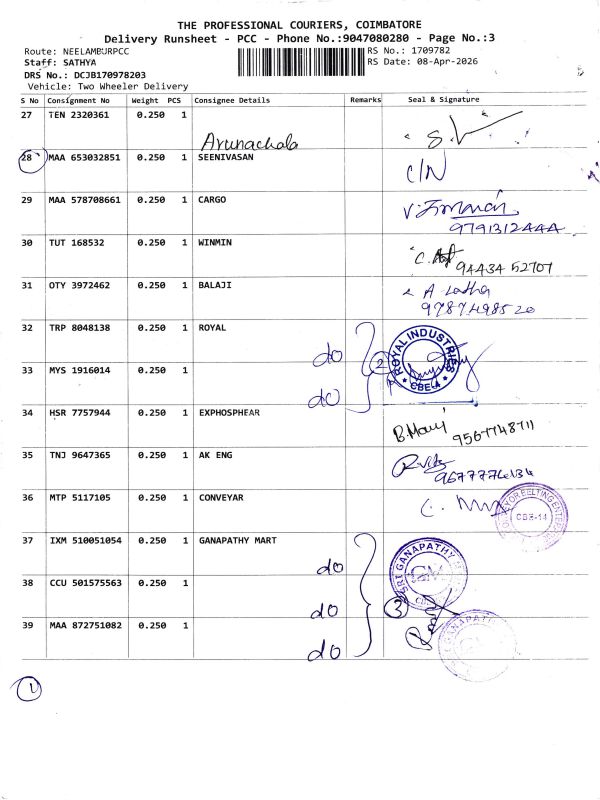 THE PROFESSIONAL COURIERS, COIMBATORE
Delivery Runsheet - PCC - Phone No.:9047080280 - Page No.:3
Route: NEELAMBURPCC RS No.: 1709782
Staff: SATHYA RS Date: 08-Apr-2026
DRS No.: DCJB170978203
Vehicle: Two Wheeler Delivery
S No Consignment No Weight PCS Consignee Details Remarks Seal & Signature
27 TEN 2320361 0.250 1
Arunachala
28 MAA 653032851 0.250 1 SEENIVASAN C/N
29 MAA 578708661 0.250 1 CARGO
9791312444
30 TUT 168532 0.250 1 WINMIN
94434 52707
31 OTY 3972462 0.250 1 BALAJI A Latha
9787498520
32 TRP 8048138 0.250 1 ROYAL
do 2 ROYAL INDUSTRIES CBE
33 MYS 1916014 0.250 1
do
34 HSR 7757944 0.250 1 EXPHOSPHEAR
9567748711
35 TNJ 9647365 0.250 1 AK ENG
36 MTP 5117105 0.250 1 CONVEYAR
CBE-14
37 IXM 510051054 0.250 1 GANAPATHY MART
do SRI GANAPATHY
38 CCU 501575563 0.250 1
do 3
39 MAA 872751082 0.250 1
do GANAPATHY
1